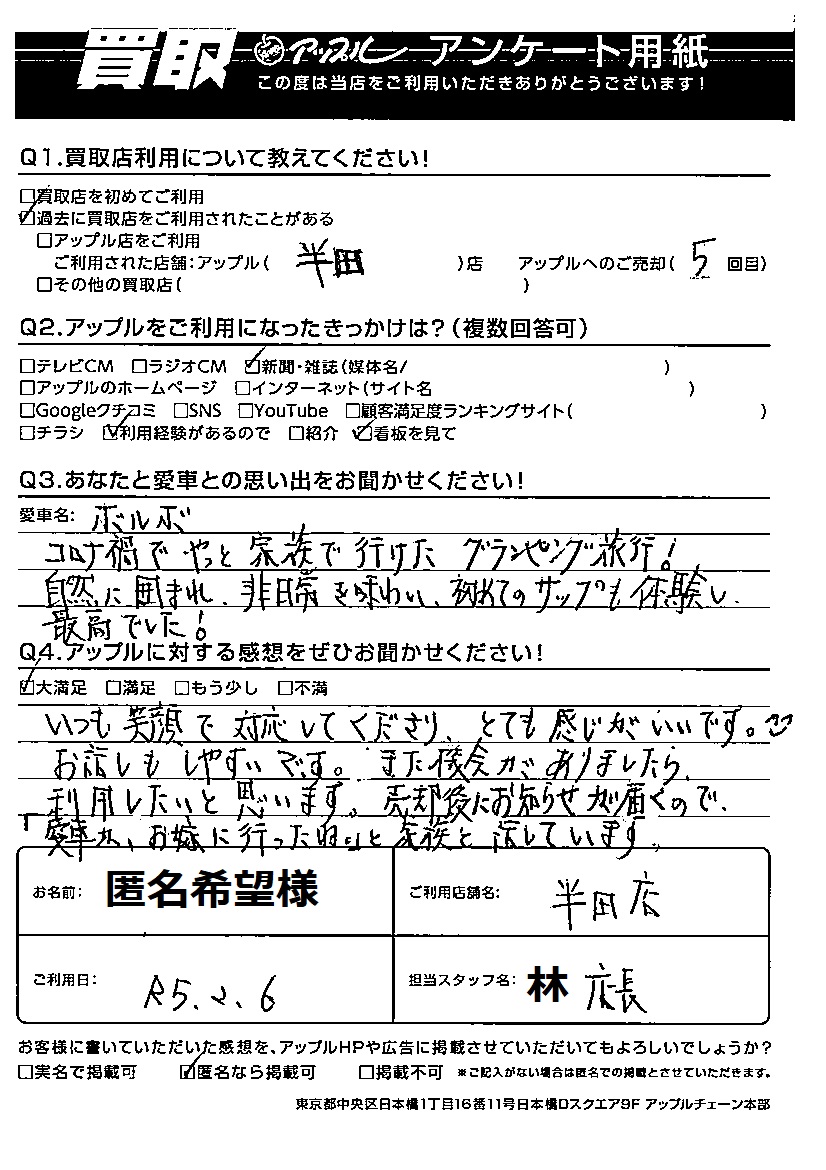 買取 アップル アンケート用紙
この度は当店をご利用いただきありがとうございます!
Q1.買取店利用について教えてください!
□買取店を初めてご利用
☑過去に買取店をご利用されたことがある
□アップル店をご利用
ご利用された店舗:アップル( 半田 )店 アップルへのご売却( 5 回目)
□その他の買取店( )
Q2.アップルをご利用になったきっかけは?(複数回答可)
□テレビCM □ラジオCM ☑新聞・雑誌(媒体名/ )
□アップルのホームページ □インターネット(サイト名 )
□Googleクチコミ □SNS □YouTube □顧客満足度ランキングサイト( )
□チラシ ☑利用経験があるので □紹介 ☑看板を見て
Q3.あなたと愛車との思い出をお聞かせください!
愛車名: ボルボ
コロナ禍でやっと家族で行けたグランピング旅行!
自然に囲まれ、非日常を味わい、初めてのサップも体験し、
最高でした!
Q4.アップルに対する感想をぜひお聞かせください!
☑大満足 □満足 □もう少し □不満
いつも笑顔で対応してくださり、とても感じがいいです。
お話しもしやすいです。また機会がありましたら、
利用したいと思います。売却後にお知らせが届くので、
「愛車が、お嫁に行ったね」と家族と話しています。
お名前: 匿名希望様 ご利用店舗名: 半田店
ご利用日: R5.2.6 担当スタッフ名: 林 店長
お客様に書いていただいた感想を、アップルHPや広告に掲載させていただいてもよろしいでしょうか?
□実名で掲載可 ☑匿名なら掲載可 □掲載不可 ※ご記入がない場合は匿名での掲載とさせていただきます。
東京都中央区日本橋1丁目16番11号日本橋Dスクエア9F アップルチェーン本部